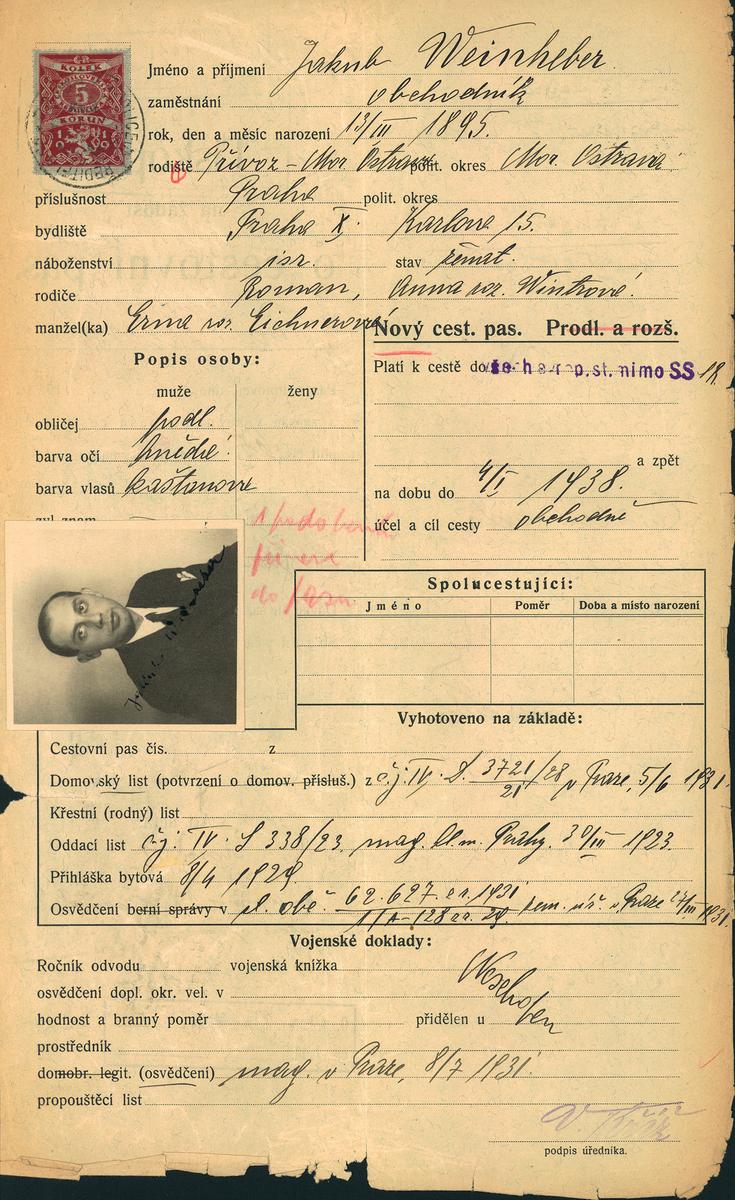 KOLEK
5
KORUN
1919
Jméno a příjmení Jakub Weinheber
zaměstnání obchodník
rok, den a měsíc narození 13/III 1895.
rodiště Přívoz - Mor. Ostrava polit. okres Mor. Ostrava
příslušnost Praha polit. okres
bydliště Praha X, Karlova 15.
náboženství isr. stav ženat.
rodiče Roman, Anna roz. Wintrové.
manžel(ka) Erna roz. Eichnerové
Nový cest. pas. Prodl. a rozš.
Popis osoby:
Platí k cestě do všech evrop. st. mimo SS
muže ženy
obličej podl.
barva očí hnědé
barva vlasů kaštanové
zvl. znam.
a zpět
na dobu do 4/I 1938.
účel a cíl cesty obchodně
1 podobenk
do pasu
Spolucestující:
Jméno Poměr Doba a místo narození
Vyhotoveno na základě:
Cestovní pas čís. z
Domovský list (potvrzení o domov. přísluš.) z čj. IV. D. 3721/28 v Praze, 5/6 1931.
21
Křestní (rodný) list
Oddací list čj: IV. S 338/23. mag. hl. m. Prahy. 30/III 1923.
Přihláška bytová 8/4 1929.
Osvědčení berní správy v 62.627 v Praze 27/III 1931.
Vojenské doklady:
Ročník odvodu vojenská knížka
osvědčení dopl. okr. vel. v
hodnost a branný poměr přidělen u
prostředník
domobr. legit. (osvědčení) mag. v Praze, 8/7 1931.
propouštěcí list
podpis úředníka.